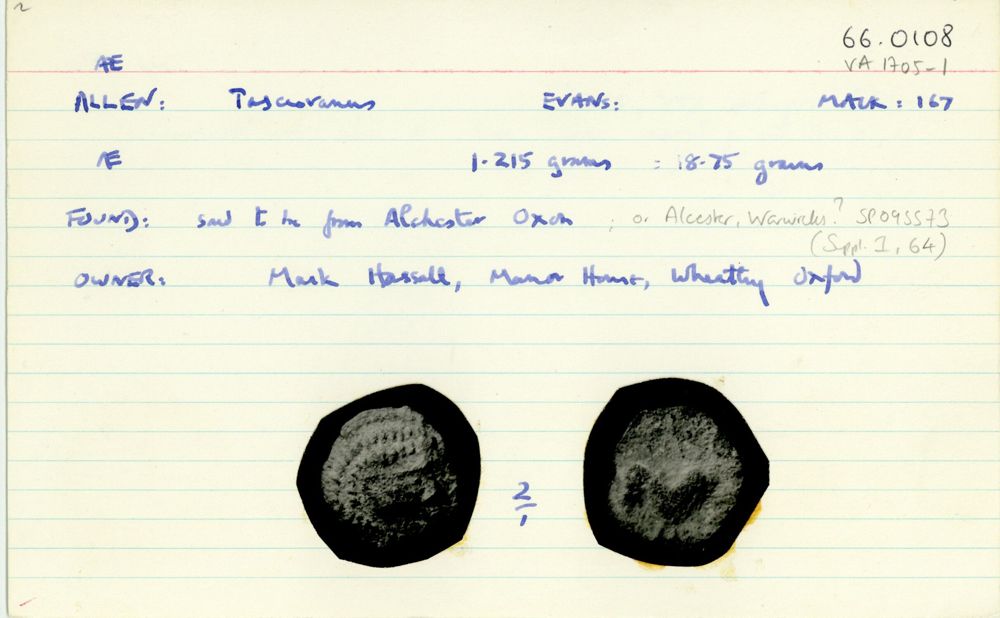 66.0108
Æ VA 1705-1
ALLEN: Tasciovanus EVANS: MACK: 167
Æ 1.215 grams = 18.75 grains
FOUND: said to be from Alchester Oxon ; or Alcester, Warwicks? SP095573
(Suppl. 1, 64)
OWNER: Mark Hassall, Manor House, Wheatley Oxford
2/1